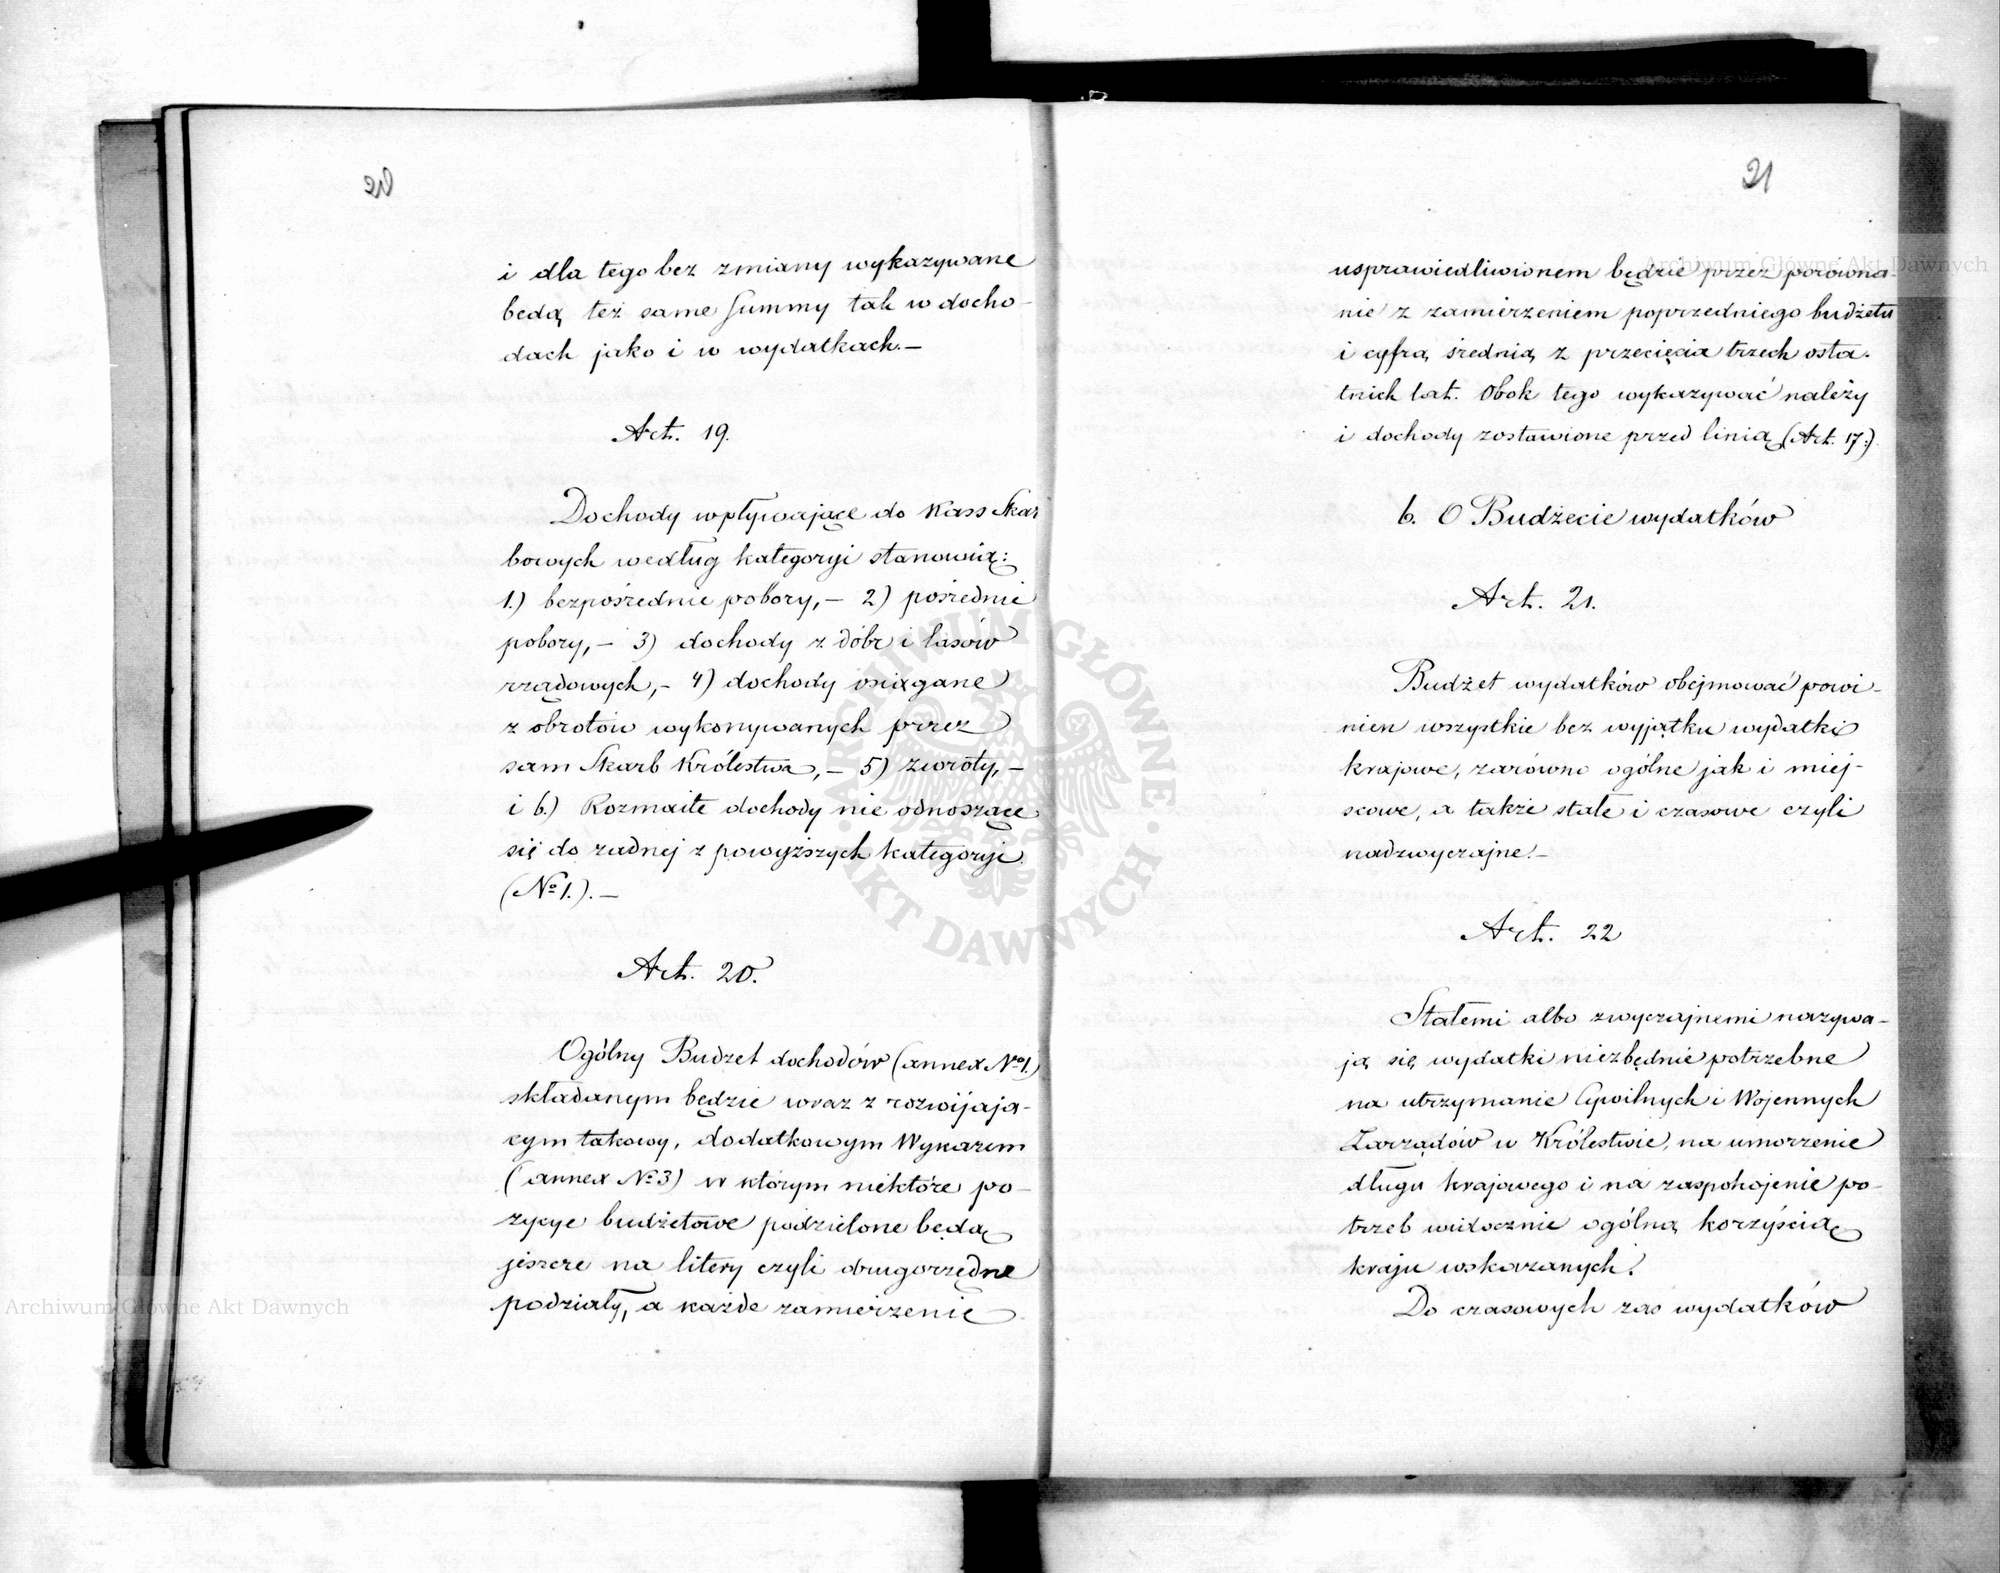 i dla tego bez zmiany wykazywane
będą też same summy tak w docho-
dach jako i w wydatkach.—
Art. 19.
Dochody wpływające do Kass Skar
bowych według kategoryi stanowią:
1.) bezpośrednie pobory,— 2) pośrednie
pobory,— 3) dochody z dóbr i lasów
rządowych,— 4) dochody osiągane
z obrotów wykonywanych przez
sam Skarb Królestwa,— 5) zwroty,—
i 6.) Rozmaite dochody nie odnoszące
się do żadnej z powyższych kategoryi
(No 1.).—
Art. 20.
Ogólny Budżet dochodów (annex No 1.)
składanym będzie wraz z rozwijają-
cym takowy, dodatkowym Wykazem
(annex No 3) w którym niektóre po-
zycye budżetowe podzielone będą
jeszcze na litery czyli drugorzędne
podziały, a każde zamierzenie
21
usprawiedliwionem będzie przez porówna-
nie z zamierzeniem poprzedniego budżetu
i cyfrą średnią z przecięcia trzech osta-
tnich lat. Obok tego wykazywać należy
i dochody zostawione przed linią (Art. 17.)
b. O Budżecie wydatków
Art. 21.
Budżet wydatków obejmować powi-
nien wszystkie bez wyjątku wydatki
krajowe, zarówno ogólne jak i miej-
scowe, a także stałe i czasowe czyli
nadzwyczajne.—
Art. 22
Stałemi albo zwyczajnemi nazywa-
ją się wydatki niezbędnie potrzebne
na utrzymanie Cywilnych i Wojennych
Zarządów w Królestwie, na umorzenie
długu krajowego i na zaspokojenie po-
trzeb widocznie ogólną korzyścią
kraju wskazanych.
Do czasowych zaś wydatków
Archiwum Główne Akt Dawnych
Archiwum Główne Akt Dawnych
ARCHIWUM GŁÓWNE · AKT DAWNYCH ·